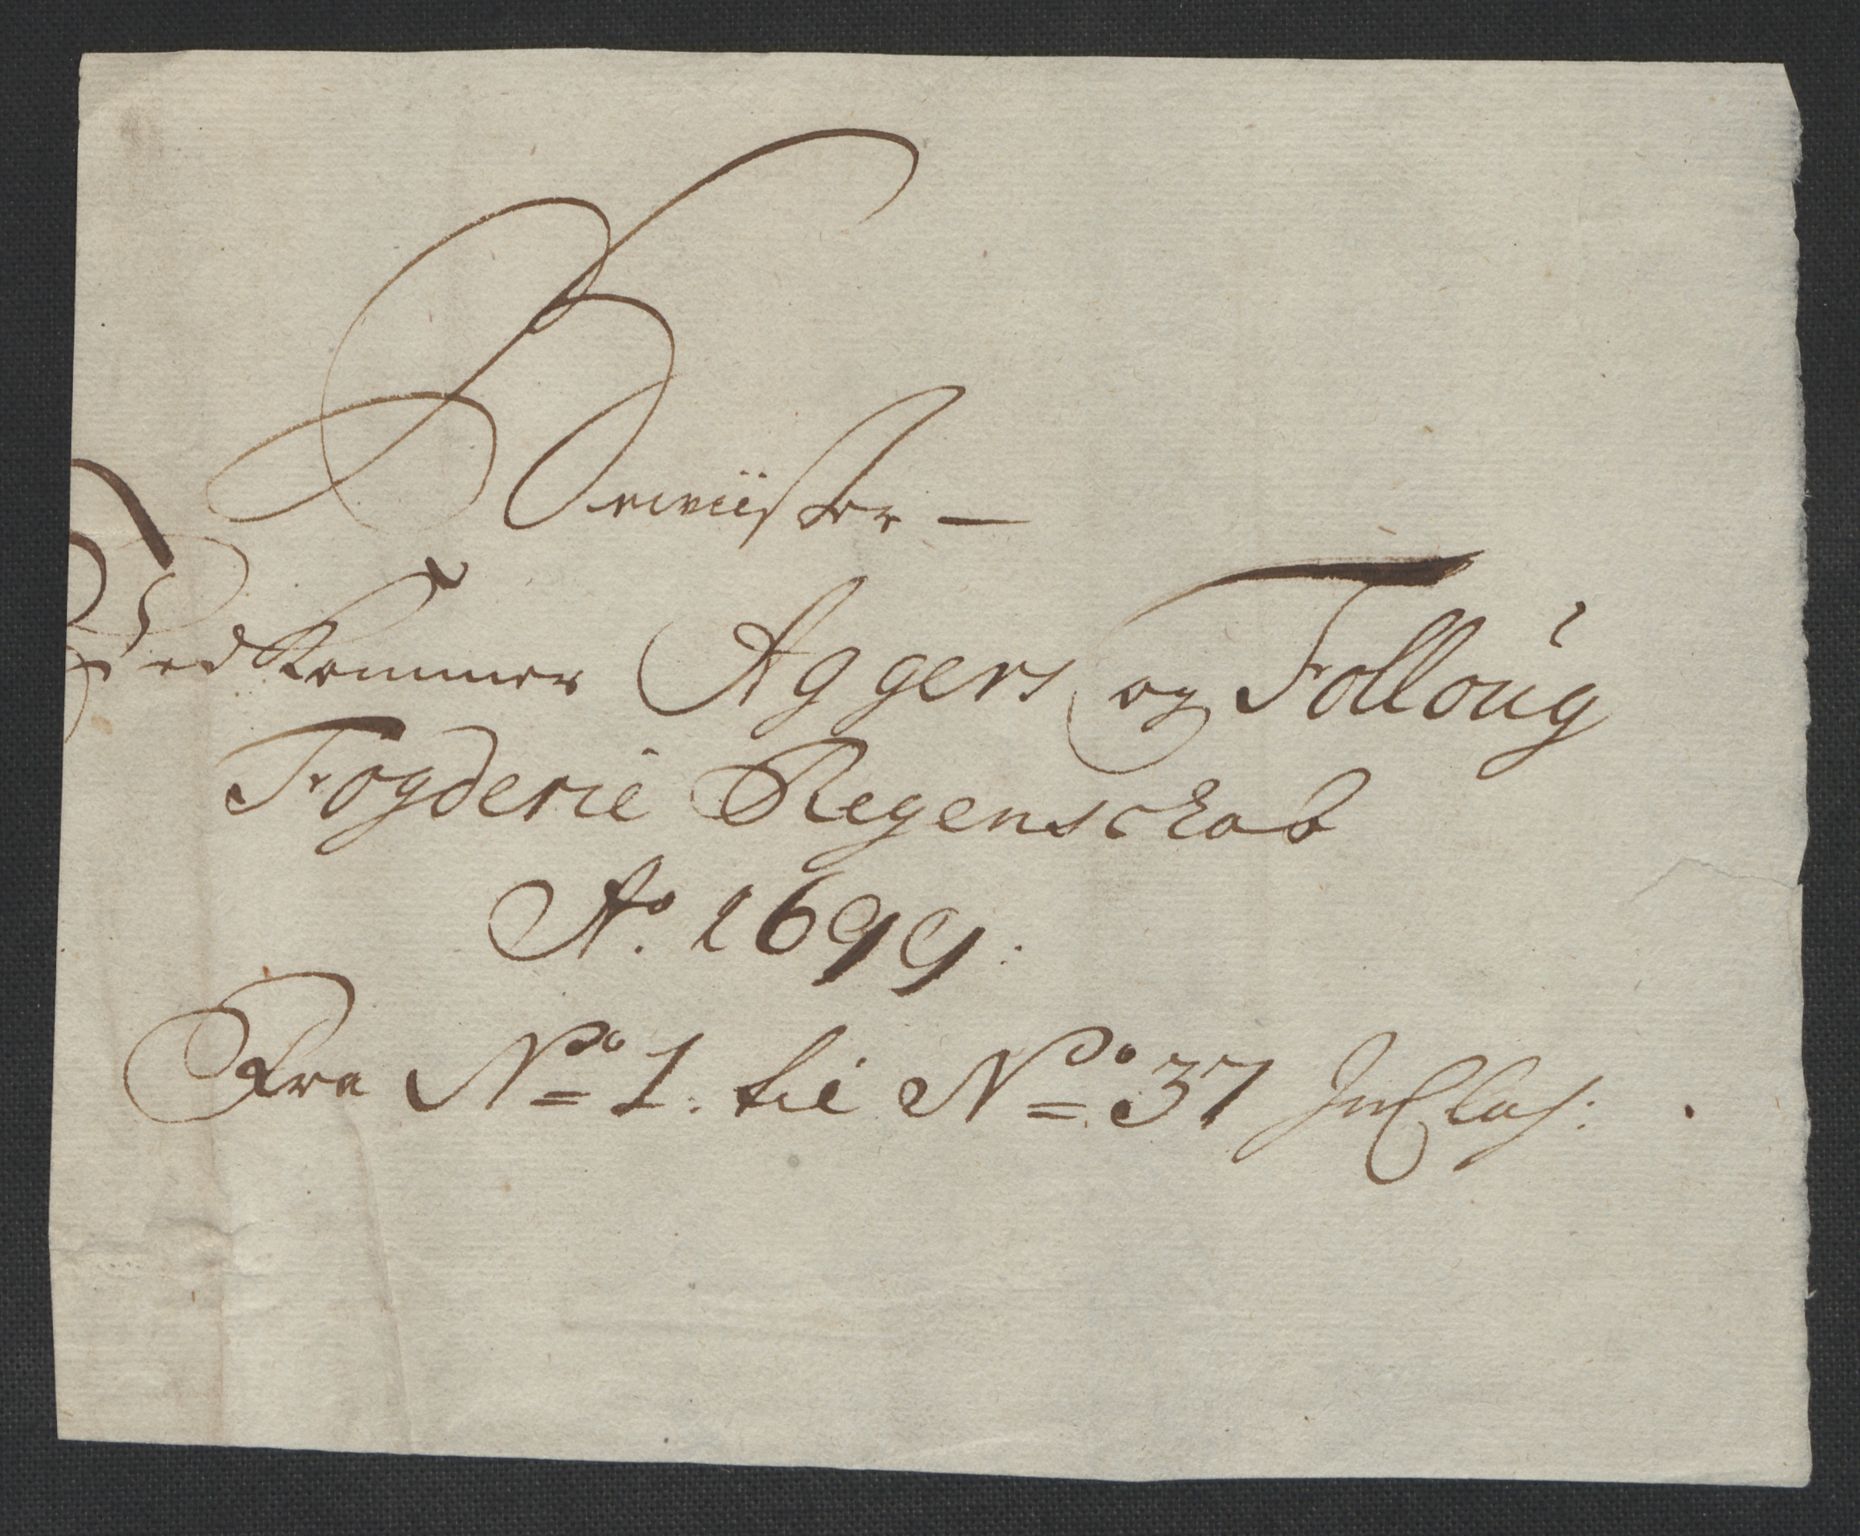 Beviister –
Vedkommer Aggers og Folloúg
Fogderie Regenschab
Ao. 1699.
Fra No 1. til No 37 Inclus: